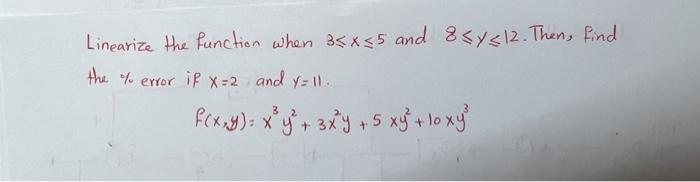 Linearize the function when 3≤x≤5 and 8≤y≤12. Then, find
the % error if x=2 and y=11.
f(x,y)= x³y² + 3x²y + 5 xy² + 10 xy³